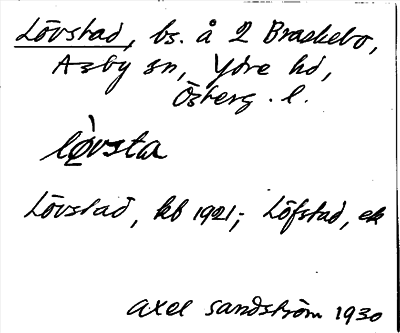 Lövstad, bs. å 2 Braskebo,
Asby sn, Ydre hd,
Ösberg. l.
lòvsta
Lövstad, kb 1921; Löfstad, ek
Axel Sandström 1930